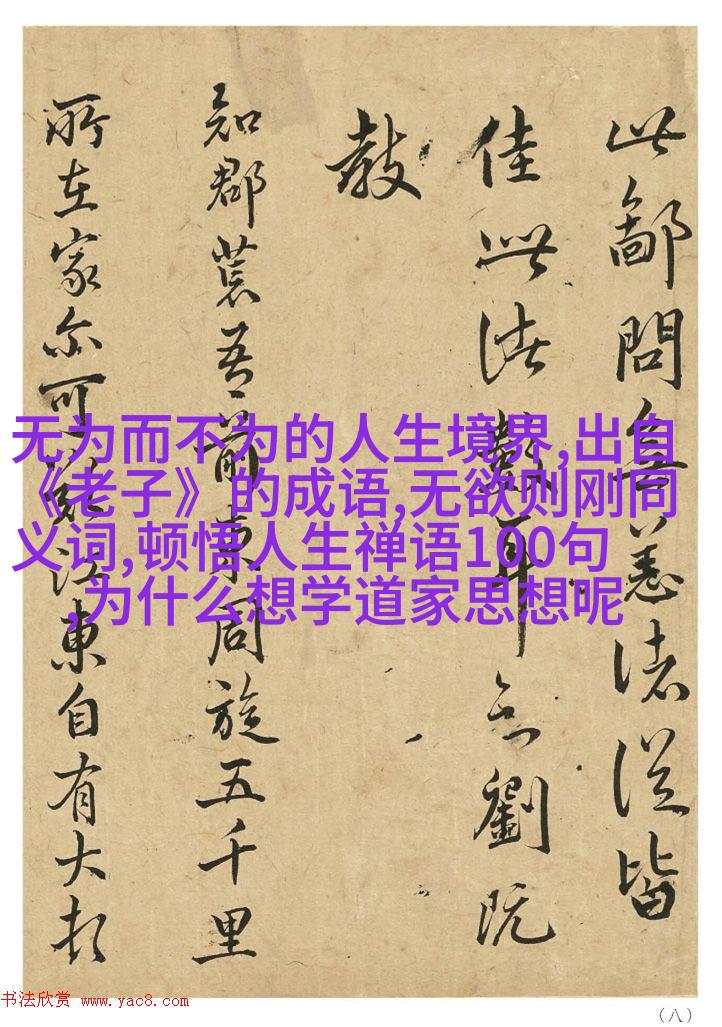 此鄙問無恙諸從皆
佳此諸數耳知劉既
教
知郡荒吾前東同旋五千里
所在家亦可分江東自有大頓
无为而不为的人生境界,出自
《老子》的成语,无欲则刚同
义词,顿悟人生禅语100句
,为什么想学道家思想呢
书法欣赏 www.yac8.com
（八）